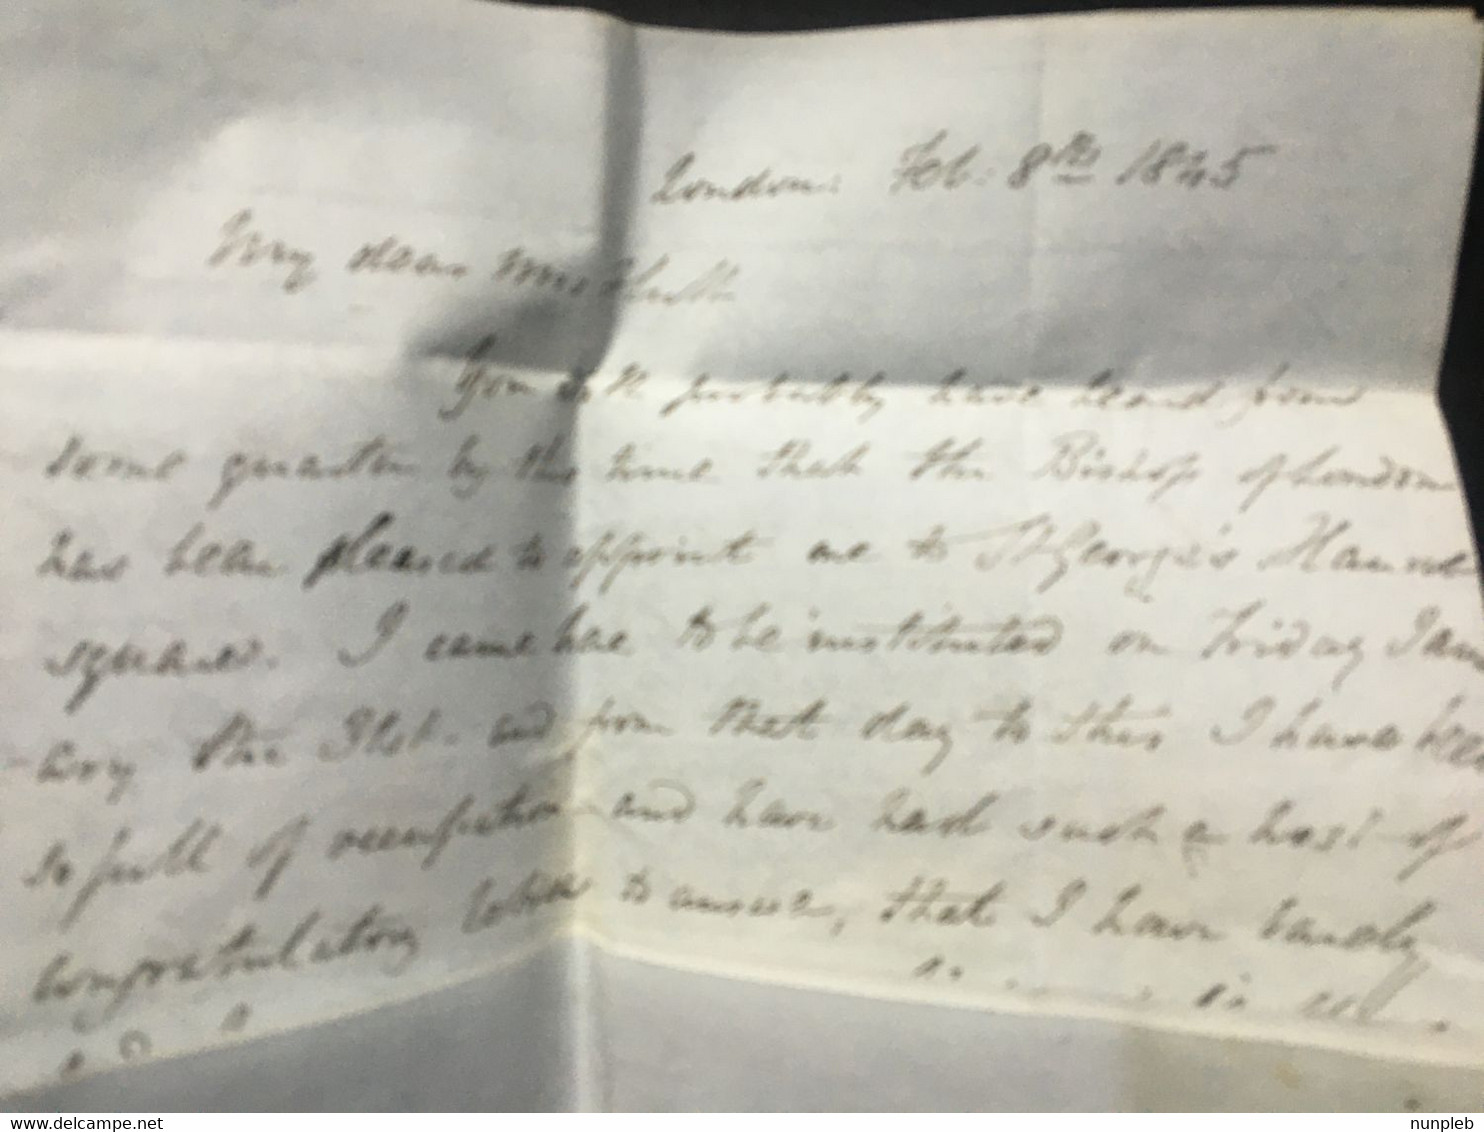 London. Feb. 8th 1845
My dear Mrs
You will probably have heard from
some quarter by this time that the Bishop of London
has been pleased to appoint me to St George's Hanover
square. I came here to be instituted on Friday Janu
ary the 31st. and from that day to this I have been
so full of occupation and have had such a host of
congratulatory letters to answer, that I have barely
www.delcampe.net
nunpleb